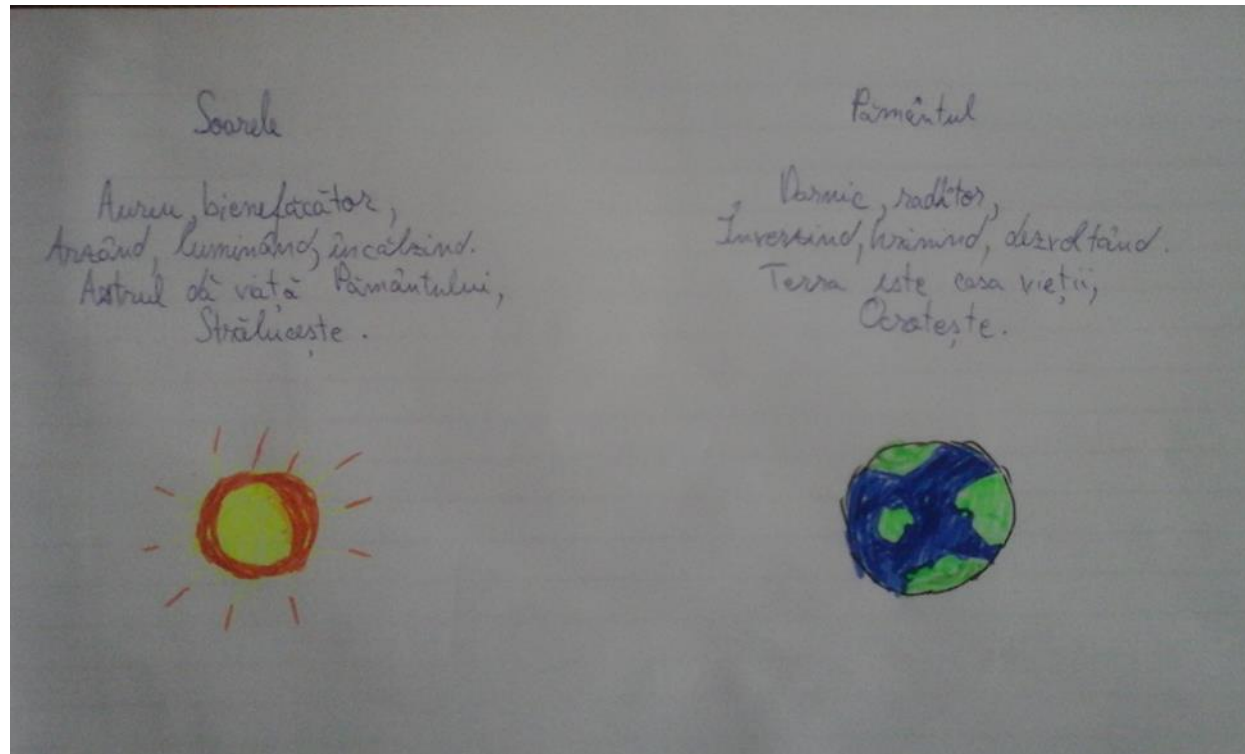 Soarele
Auriu, bienefăcător,
Arzând, luminând, încălzind.
Astrul dă viață Pământului,
Strălucește.
Pământul
Darnic, roditor,
Înverzind, hrănind, dezvoltând.
Terra este casa vieții,
Ocrotește.